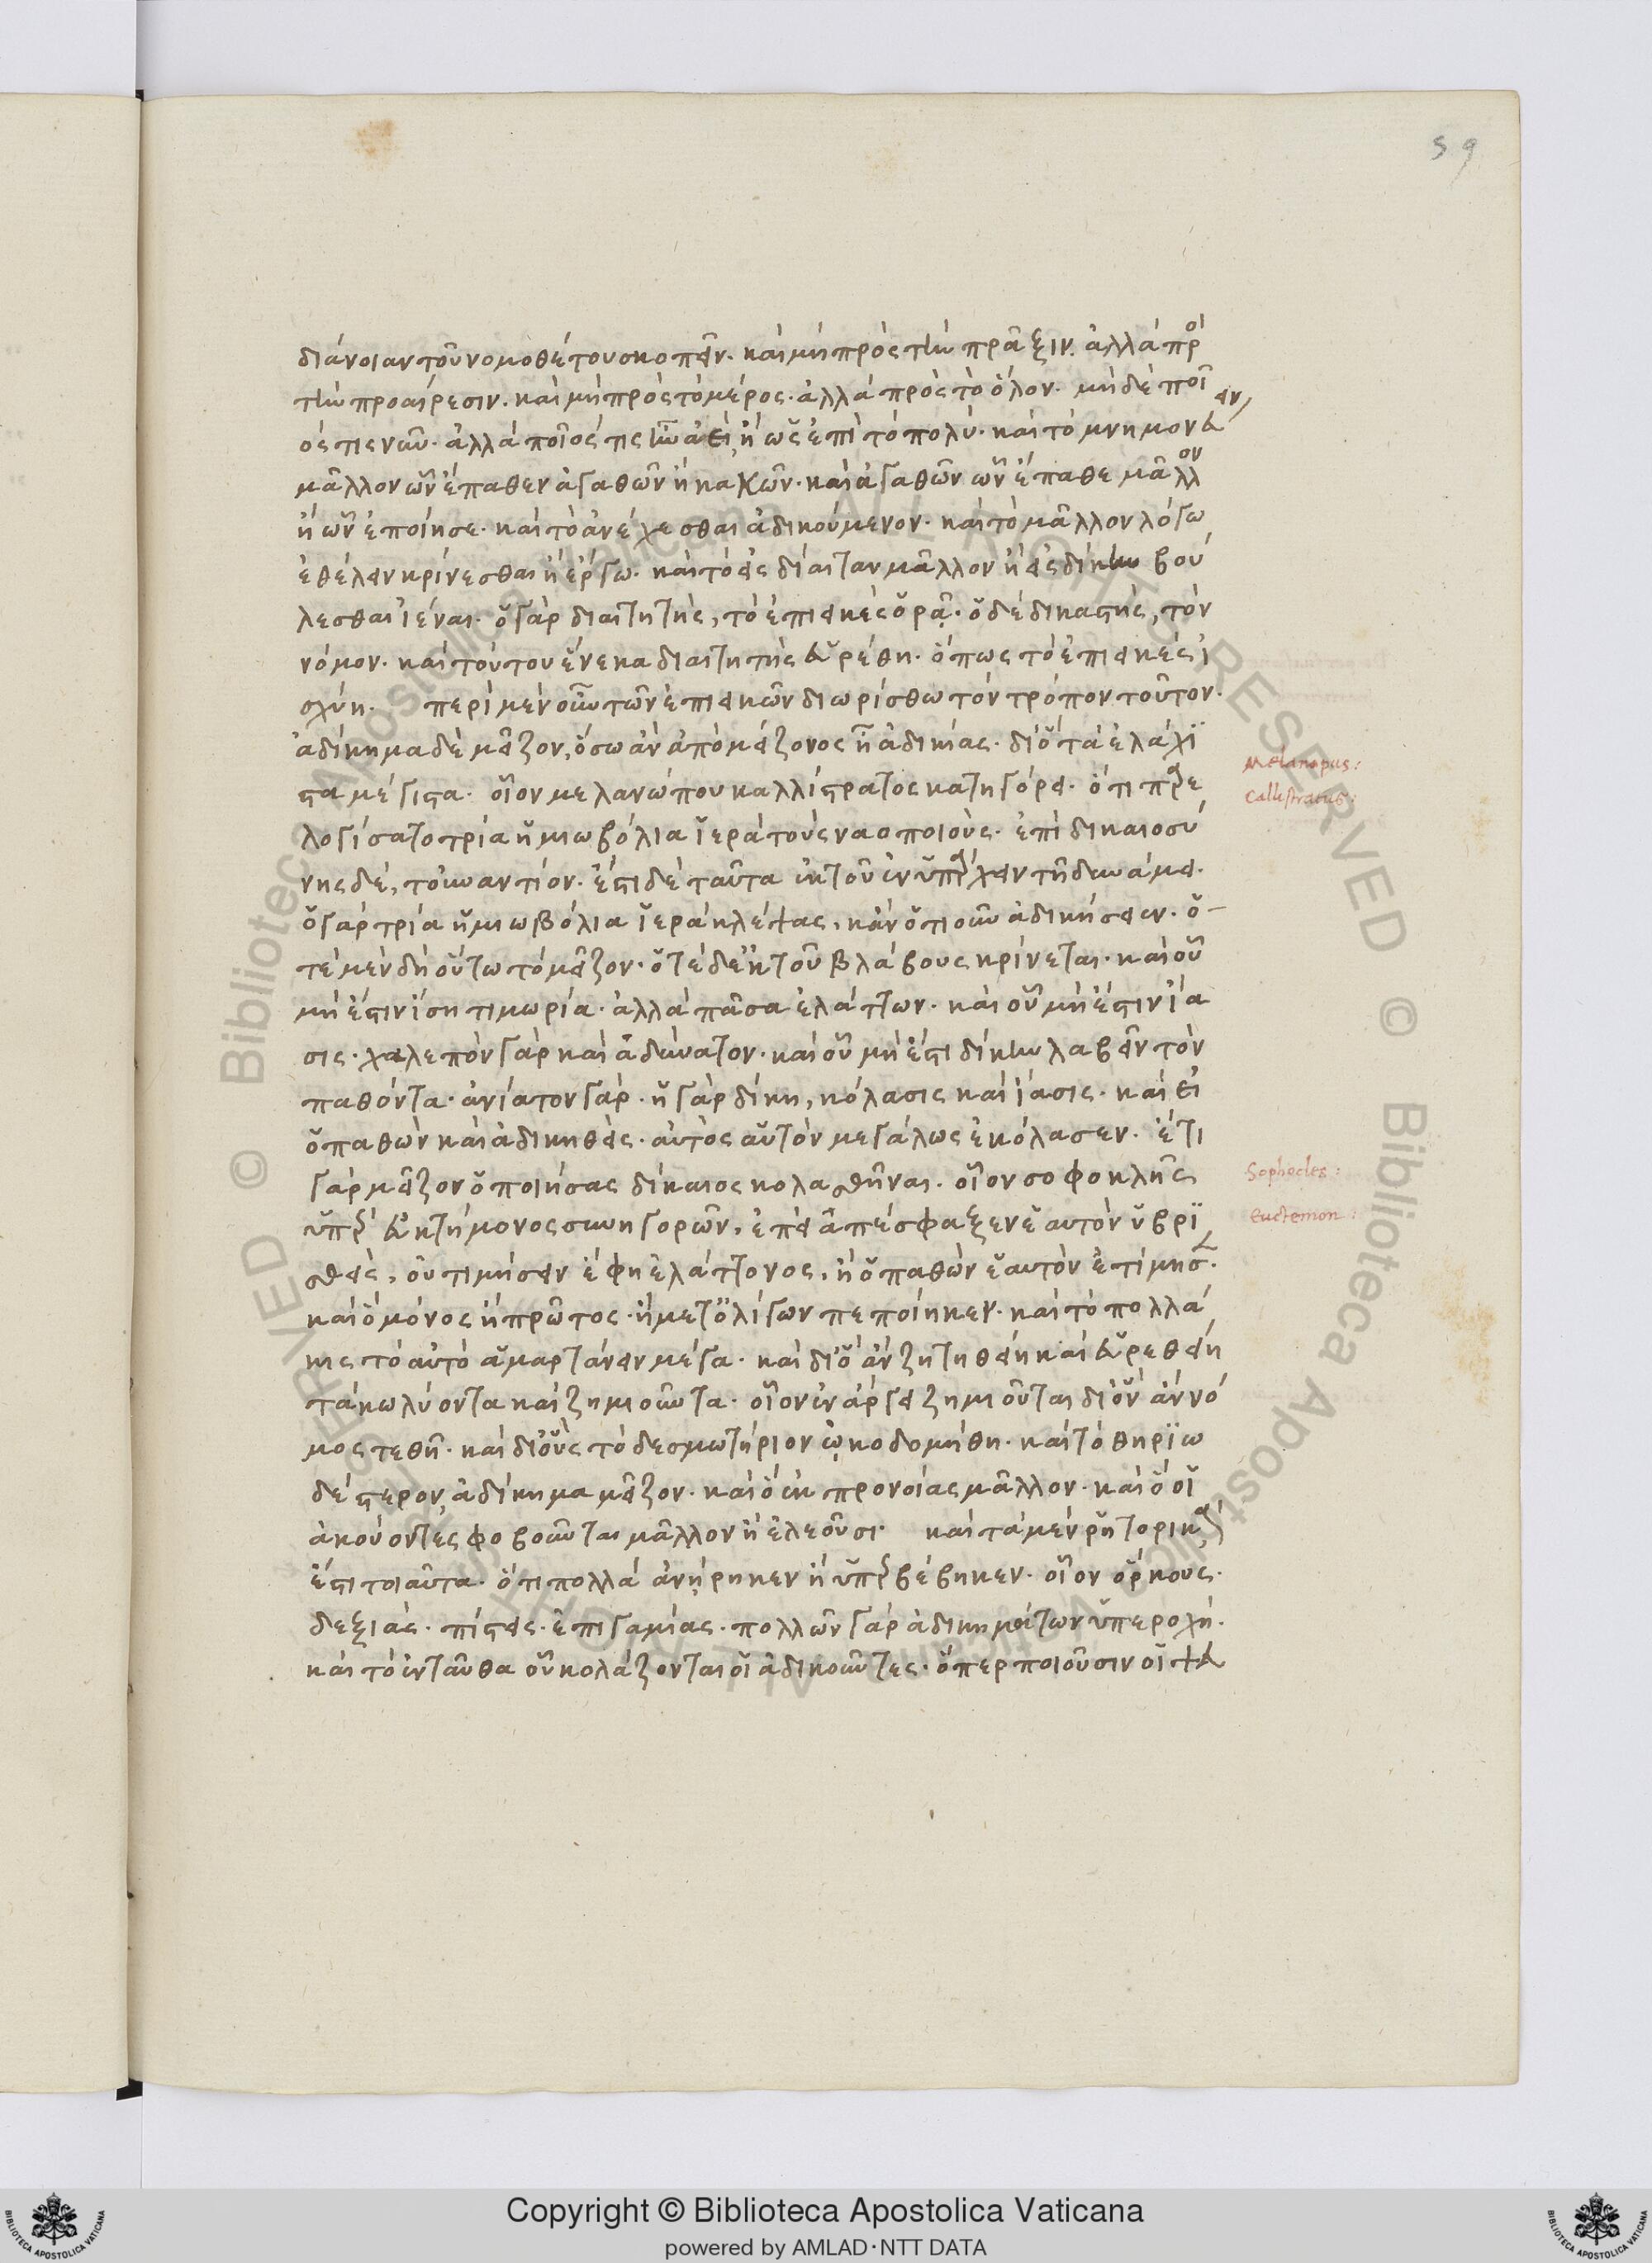 59
διάνοιαν τοῦ νομοθέτου σκοπεῖν· καὶ μὴ πρὸς τὴν πρᾶξιν· ἀλλὰ πρὸ
τὴν προαίρεσιν· καὶ μὴ πρὸς τὸ μέρος· ἀλλὰ πρὸς τὸ ὅλον· μὴ δὲ ποῖ
ός τις νῦν· ἀλλὰ ποῖός τις ἦν ἀεὶ, ἢ ὡς ἐπὶ τὸ πολύ· καὶ τὸ μνημονεύειν
μᾶλλον ὧν ἔπαθεν ἀγαθῶν ἢ κακῶν· καὶ ἀγαθῶν ὧν ἔπαθε μᾶλλον
ἢ ὧν ἐποίησε· καὶ τὸ ἀνέχεσθαι ἀδικούμενον· καὶ τὸ μᾶλλον λόγω
ἐθέλειν κρίνεσθαι ἢ ἔργω· καὶ τὸ εἰς δίαιταν μᾶλλον ἢ εἰς δίκην βού
λεσθαι ἰέναι· ὁ γὰρ διαιτητὴς, τὸ ἐπιεικὲς ὁρᾷ· ὁ δὲ δικαστὴς, τὸν
νόμον· καὶ τούτου ἕνεκα διαιτητὴς εὑρέθη· ὅπως τὸ ἐπιεικὲς ἰ
σχύη· περὶ μὲν οὖν τῶν ἐπιεικῶν διωρίσθω τὸν τρόπον τοῦτον·
ἀδίκημα δὲ μεῖζον, ὅσω ἂν ἀπὸ μείζονος ἦ ἀδικίας· διὸ τὰ ἐλάχι
στα μέγιστα· οἷον μελανώπου καλλίστρατος κατηγόρει· ὅτι παρε
λογίσατο τρία ἡμιωβόλια ἱερὰ τοὺς ναοποιούς· ἐπὶ δικαιοσύ
νης δέ, τοὐναντίον· ἔστι δὲ ταῦτα ἐκ τοῦ ἐνυπάρχειν τῆ δυνάμει·
ὁ γὰρ τρία ἡμιωβόλια ἱερὰ κλέψας, κἂν ὁτιοῦν ἀδικήσειεν· ὁ
τὲ μὲν δὴ οὕτω τὸ μεῖζον· ὁτὲ δ' ἐκ τοῦ βλάβους κρίνεται· καὶ οὗ
μὴ ἔστιν ἴση τιμωρία· ἀλλὰ πᾶσα ἐλάττων· καὶ οὗ μὴ ἔστιν ἴα
σις· χαλεπὸν γὰρ καὶ ἀδύνατον· καὶ οὗ μὴ ἔστι δίκην λαβεῖν τὸν
παθόντα· ἀνίατον γάρ· ἡ γὰρ δίκη, κόλασις καὶ ἴασις· καὶ εἰ
ὁ παθὼν καὶ ἀδικηθεὶς· αὐτὸς αὑτὸν μεγάλως ἐκόλασεν· ἔτι
γὰρ μεῖζον ὁ ποιήσας δίκαιος κολασθῆναι· οἷον σοφοκλῆς
ὑπὲρ εὐκτήμονος συνηγορῶν, ἐπεὶ ἀπέσφαξεν ἑαυτὸν ὑβρι
σθεὶς, οὐ τιμήσειν ἔφη ἐλάττονος, ἢ ὁ παθὼν ἑαυτὸν ἐτίμησε·
καὶ ὃ μόνος ἢ πρῶτος· ἢ μετ' ὀλίγων πεποίηκεν· καὶ τὸ πολλά
κις τὸ αὐτὸ ἁμαρτάνειν μέγα· καὶ δι' ὃ ἂν ζητηθείη καὶ εὑρεθείη
τὰ κωλύοντα καὶ ζημιοῦντα· οἷον ἐν ἄργει ζημιοῦται δι' ὃν ἂν νό
μος τεθῆ· καὶ δι' οὓς τὸ δεσμωτήριον ᾠκοδομήθη· καὶ τὸ θηριω
δέστερον, ἀδίκημα μεῖζον· καὶ ὃ ἐκ προνοίας μᾶλλον· καὶ ὃ οἱ
ἀκούοντες φοβοῦνται μᾶλλον ἢ ἐλεοῦσι· καὶ τὰ μὲν ῥητορικά
ἐστι τοιαῦτα· ὅτι πολλὰ ἀνῄρηκεν ἢ ὑπερβέβηκεν· οἷον ὅρκους·
δεξιάς· πίστεις· ἐπιγαμίας· πολλῶν γὰρ ἀδικημάτων ὑπεροχή·
καὶ τὸ ἐνταῦθα οὗ κολάζονται οἱ ἀδικοῦντες· ὅπερ ποιοῦσιν οἱ ψευ
Melanopus:
Callistratus:
Sophocles:
Euctemon:
Copyright © Biblioteca Apostolica Vaticana
powered by AMLAD·NTT DATA